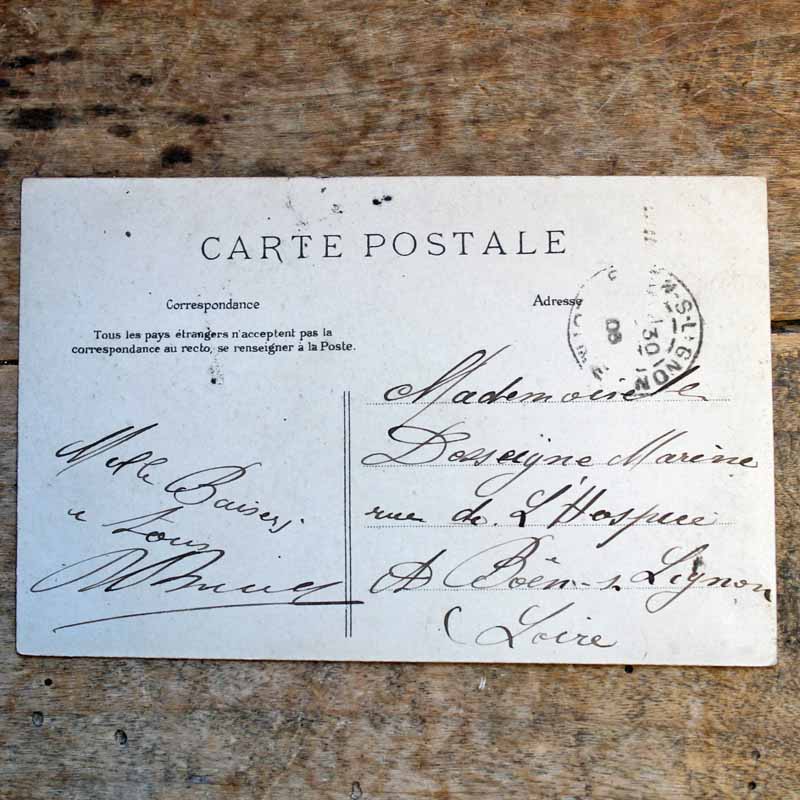 CARTE POSTALE
Correspondance
Tous les pays étrangers n'acceptent pas la
correspondance au recto, se renseigner à la Poste.
Mille Baisers
a tous
Adresse
N-S-LIGNON
30
08
Mademoiselle
Desseigne Marine
rue de L'Hospice
A Boën-s Lignon
(Loire